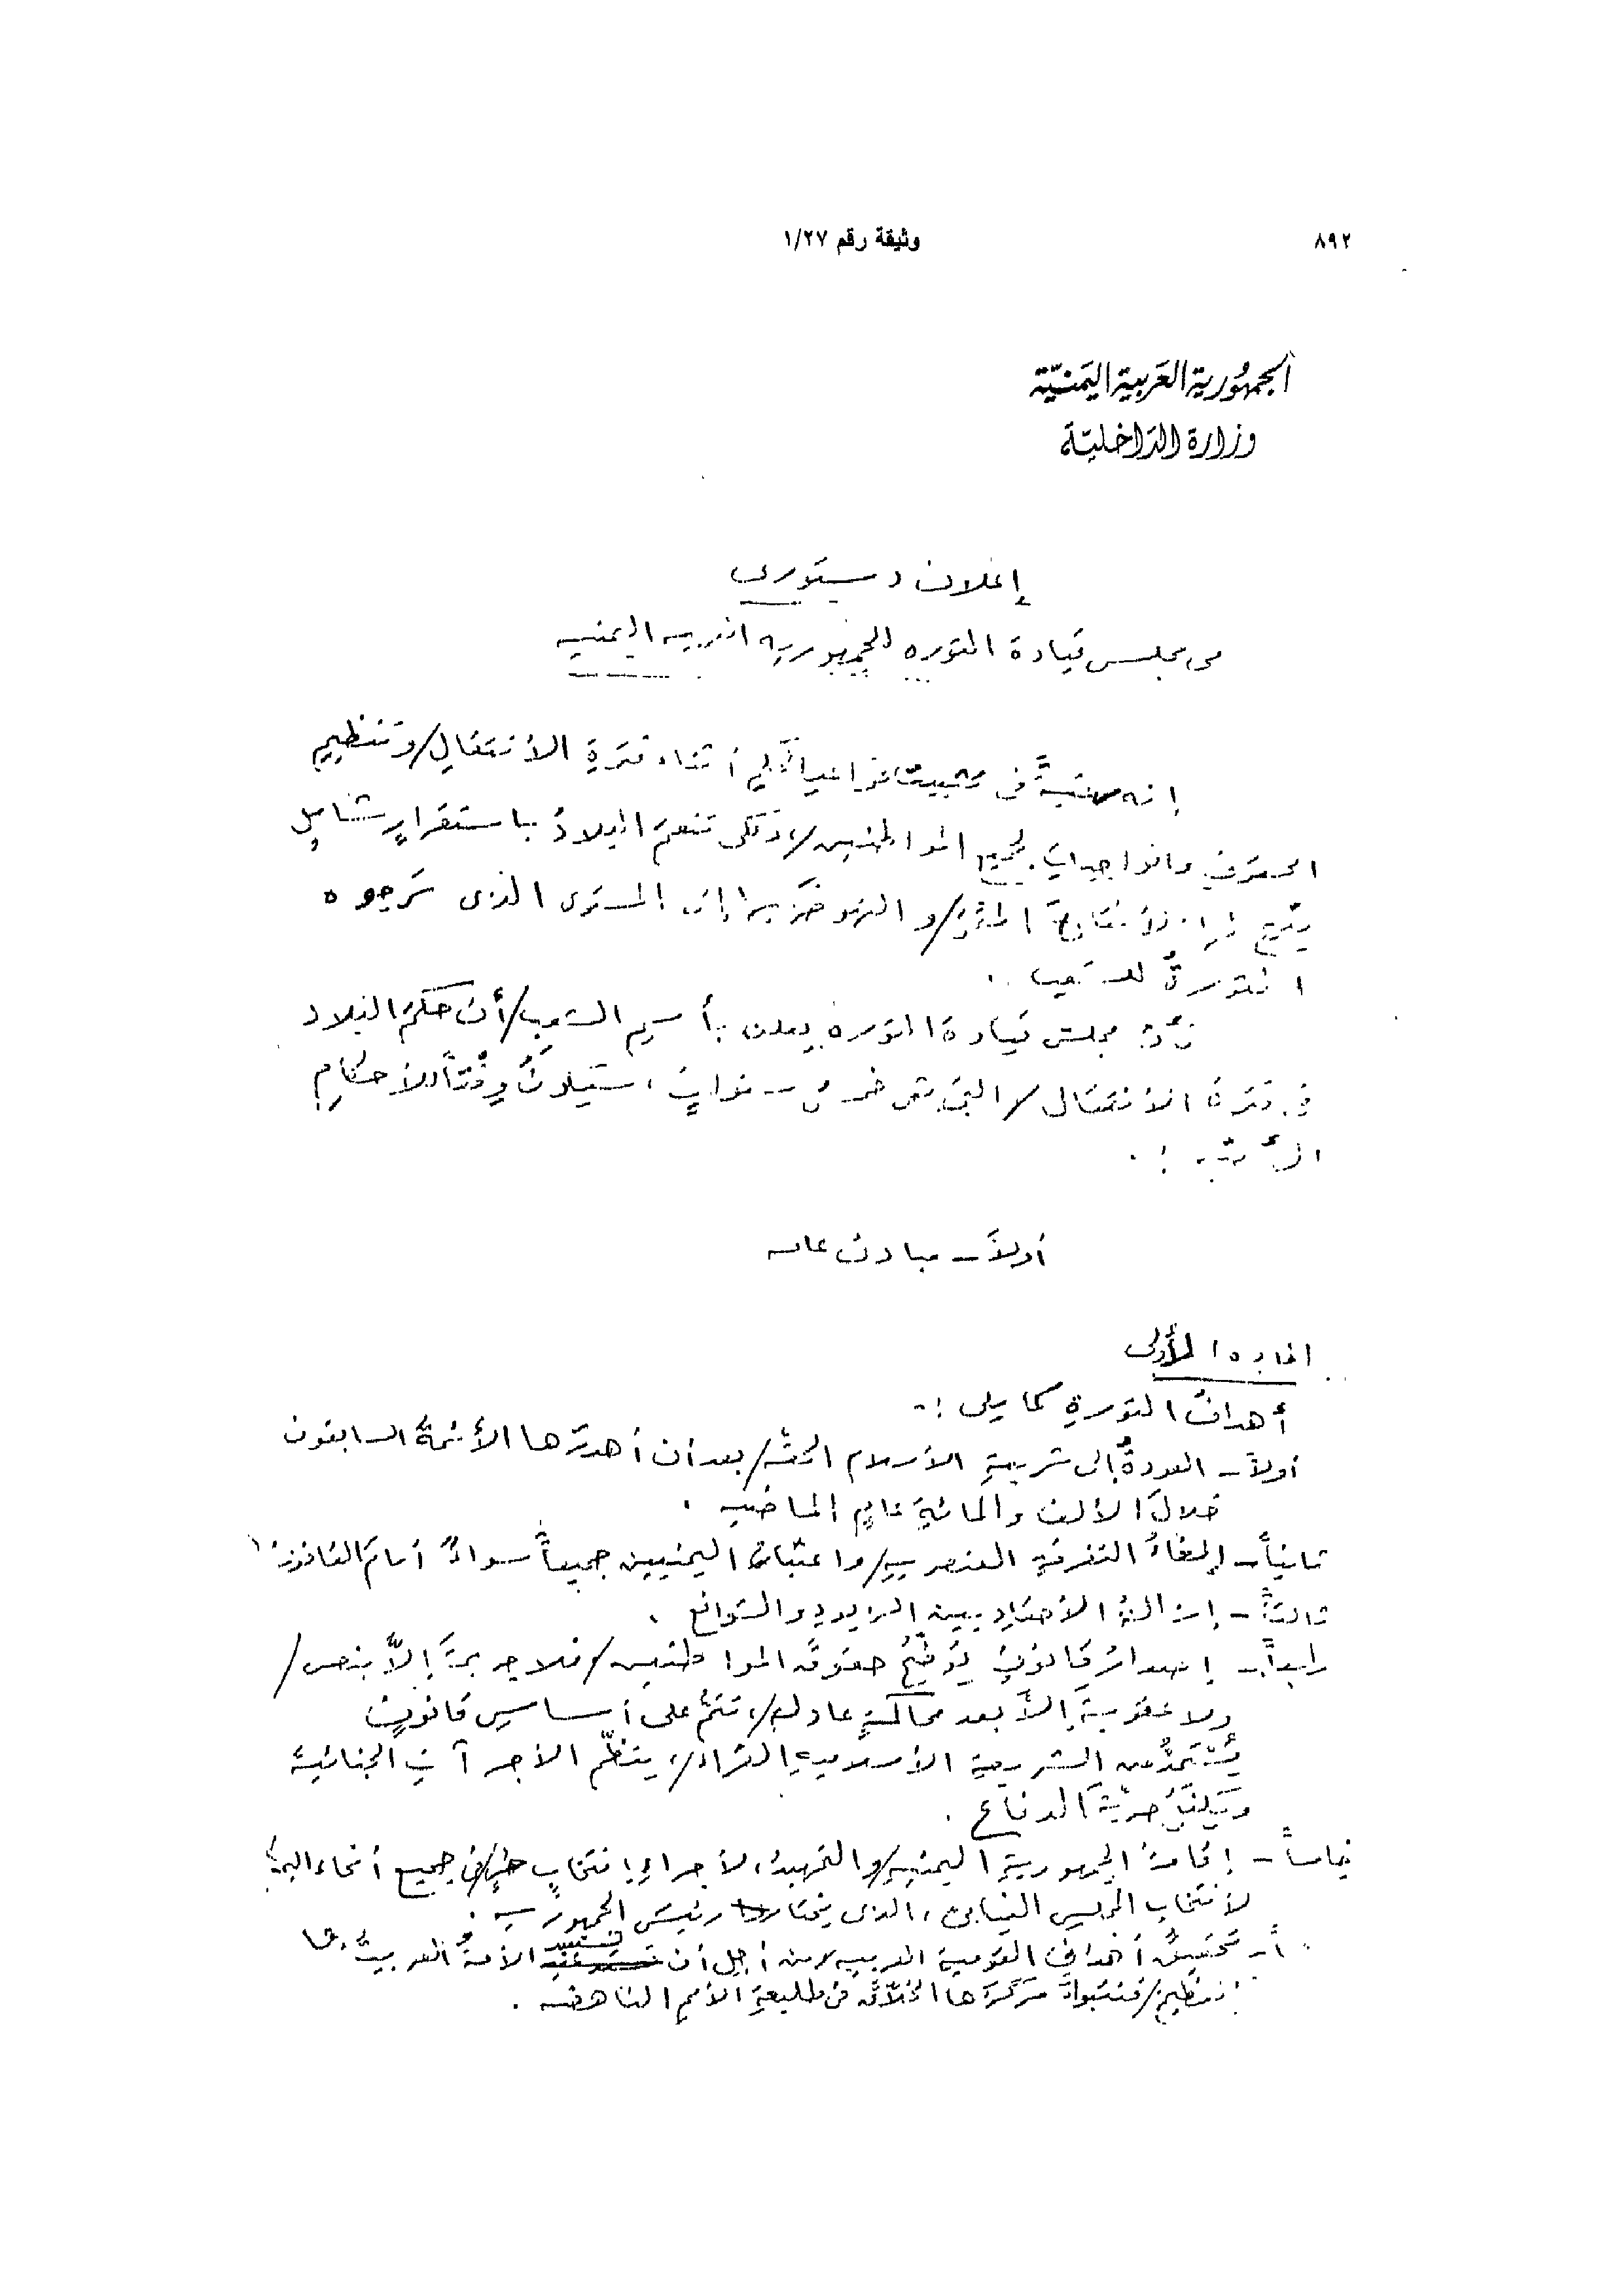 ٨٩٢
وثيقة رقم ١/٢٧
الجمهُورية العَربية اليَمنيّة
وزارة الدَاخليّة
إعلان دستورى
من مجلس قيادة الثوره للجمهوريه العربيه اليمنيه
إنه رغبةً فى تثبيت قواعد الحكم أثناء فترةِ الأنتقالِ/وتنظيمِ
الحقوقِ والواجباتِ لجميع المواطنين/، ولكى تنعمَ البلادُ باستقرارٍ شاملٍ
يتيح لها الأنتاجَ المثمرَ/والنهوضَ بها إلى المستوى الذى ترجوه
الثورةُ للشعب ..
فأن مجلس قيادة الثوره يعلن بأسمِ الشعبِ/أن حكمَ البلاد
فى فترةِ الأنتقال/التى هى خمس سنواتٍ، ستكونُ وفقاً للأحكامِ
الأتيه :.
أولاً ـ مبادئ عامه
الماده الأولى
أهدافُ الثورةِ كما يلى :ـ
أولاً ـ العودةُ إلى شريعةِ الأسلام الحقّه/بعد أن أهدرَها الأئمةُ السابقون
خلالَ الألف والمائةِ عامٍ الماضيه .
ثانياً ـ إلغاءُ التفرقةِ العنصريهِ/واعتبارُ اليمنيين جميعاً سواءً أمامَ القانون
ثالثاً ـ إزالةُ الأحقادِ بين الزيودِ والشوافع .
رابعاً ـ إصدارُ قانونٍ يُوضّحُ حقوقَ المواطنين/فلا جريمةَ إلاّ بنص/
ولا عقوبةَ إلاّ بعد محاكمةٍ عادلهٍ/، تتمُّ على أساسِ قانونٍ
يُستَمدُّ من الشريعةِ الأسلاميةِ الغراء/، ينظّم الأجراآتِ الجنائيةَ
ويكفلُ حريّةَ الدفاع .
خامساً ـ إقامةُ الجمهوريةِ اليمنيهِ/والتمهيدُ، لأجراءِ إنتخابٍ حُرٍ/فى جميع أنحاء اليمن/
لأنتخاب المجلس النيابى، الذى يختارُ رئيسَ الجمهوريه .
أ ـ تحقيقُ أهدافِ القوميه العربيه/من أجلِ أن تستعيد الأمةُ العربيةُ
فتتبوأَ مركزَها الخلاّق فى طليعةِ الأمم الناهضه .